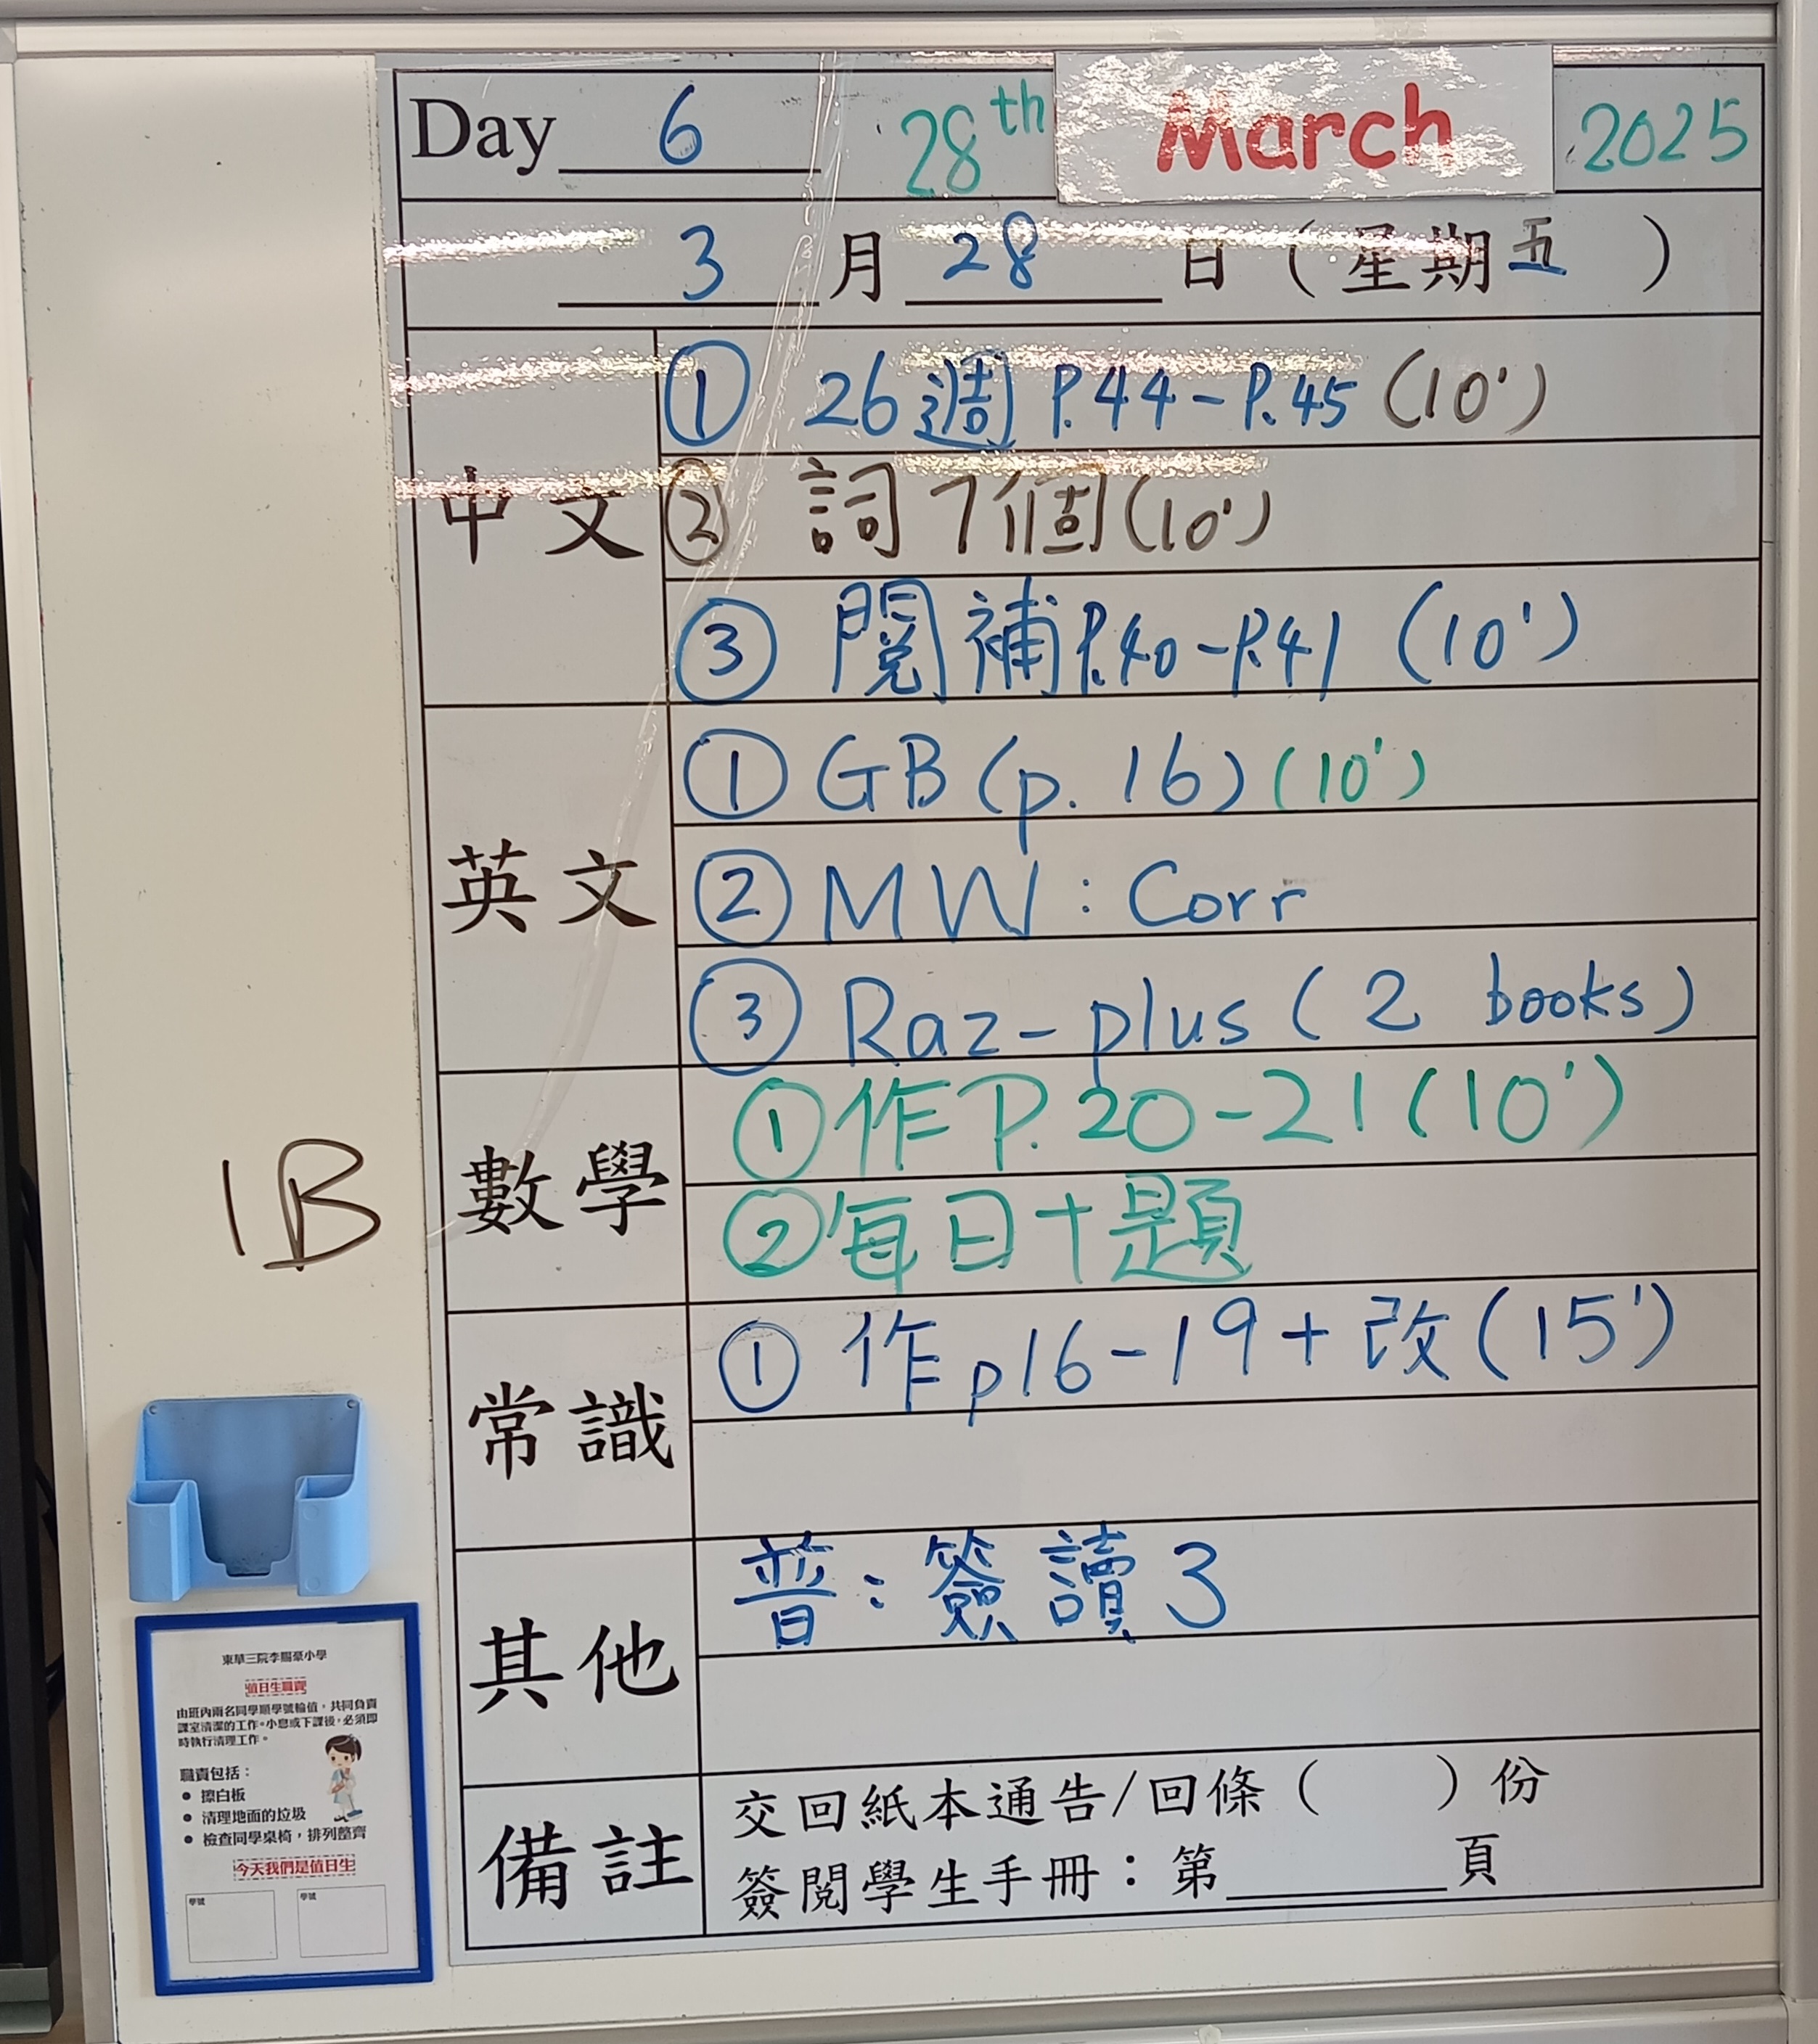 Day 6 28th March 2025
3 月 28 日（星期五）
中文
① 26週 P.44-P.45 (10')
② 詞7個(10')
③ 閱補P.40-P.41 (10')
英文
① GB (p. 16) (10')
② MW : Corr
③ Raz-plus ( 2 books )
數學
①作P.20-21 (10')
②每日十題
常識
① 作p16-19+改(15')
其他
普：簽讀3
備註
交回紙本通告/回條（ ）份
簽閱學生手冊：第 頁
1B
東華三院李賜豪小學
值日生職責
由班內兩名同學順學號輪值，共同負責
課室清潔的工作。小息或下課後，必須即
時執行清理工作。
職責包括：
• 擦白板
• 清理地面的垃圾
• 檢查同學桌椅，排列整齊
今天我們是值日生
學號 學號